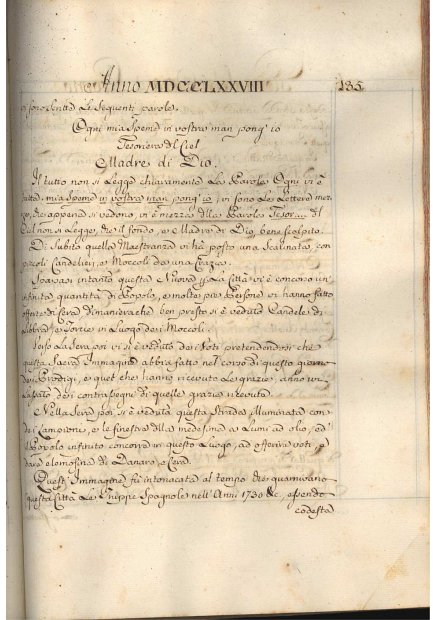 Anno MDCCLXXVIII 135
vi sono scritte le seguenti parole.
Ogni mia Speme in vostra man pong' io
Tesoriera del Ciel
Madre di Dio.
Il tutto non si legge chiaramente La Parola Ogni vi è
mia Speme in vostra man pong' io, vi sono le Lettere
che appena si vedono, vi è mezza della Parola Tesor... del
Ciel non si legge, che il fondo, e Madre di Dio, bene scolpito.
Di Subito quella Maestranza vi hà posto una Scalinata, con
piccoli Candelieri, e Moccoli da una Crazia.
Sparsasi intanto questa Nuova p. la Città vi è concorso un'
infinita quantità di Popolo, e molte pie Persone vi hanno fatto
offerte di Cera dimanierache ben presto si è veduto Candele di
Libbra, e Torcie in Luogo dei Moccoli.
Verso La Sera poi vi si è veduto dei Voti pretendendosi che
questa Sacra Immagine abbia fatto nel corso di questo giorno
dei Prodigi, e quei che hanno ricevuto le grazie, anno
dei contrassegni di quelle grazie ricevute.
Nella Sera poi si è veduta questa Strada illuminata con
dei Lampioni, e le finestre della medesima a Lumi ad olio, ed il
Popolo infinito concorreva in questo Luogo, ad offerire voti, e
dare elemosine di Danaro, e Cera.
Quest' Immagine fù intonacata al tempo che guarnivano
questa Città Le Truppe Spagnole nell' Anni 1730 &c, essendo
codesta